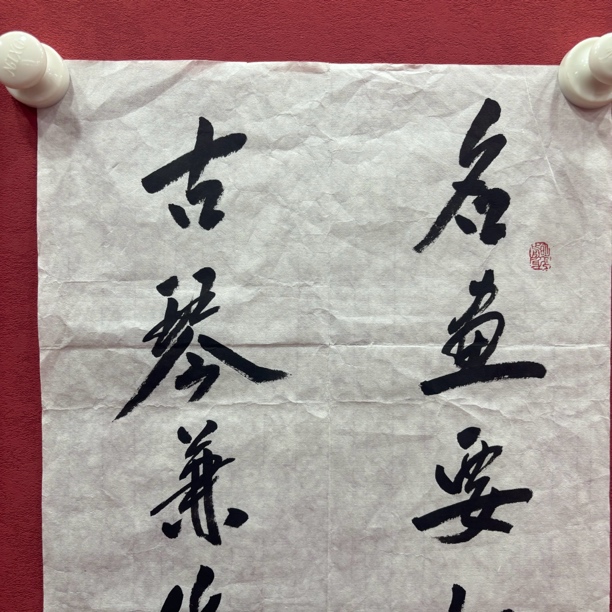 名画要
古琴兼